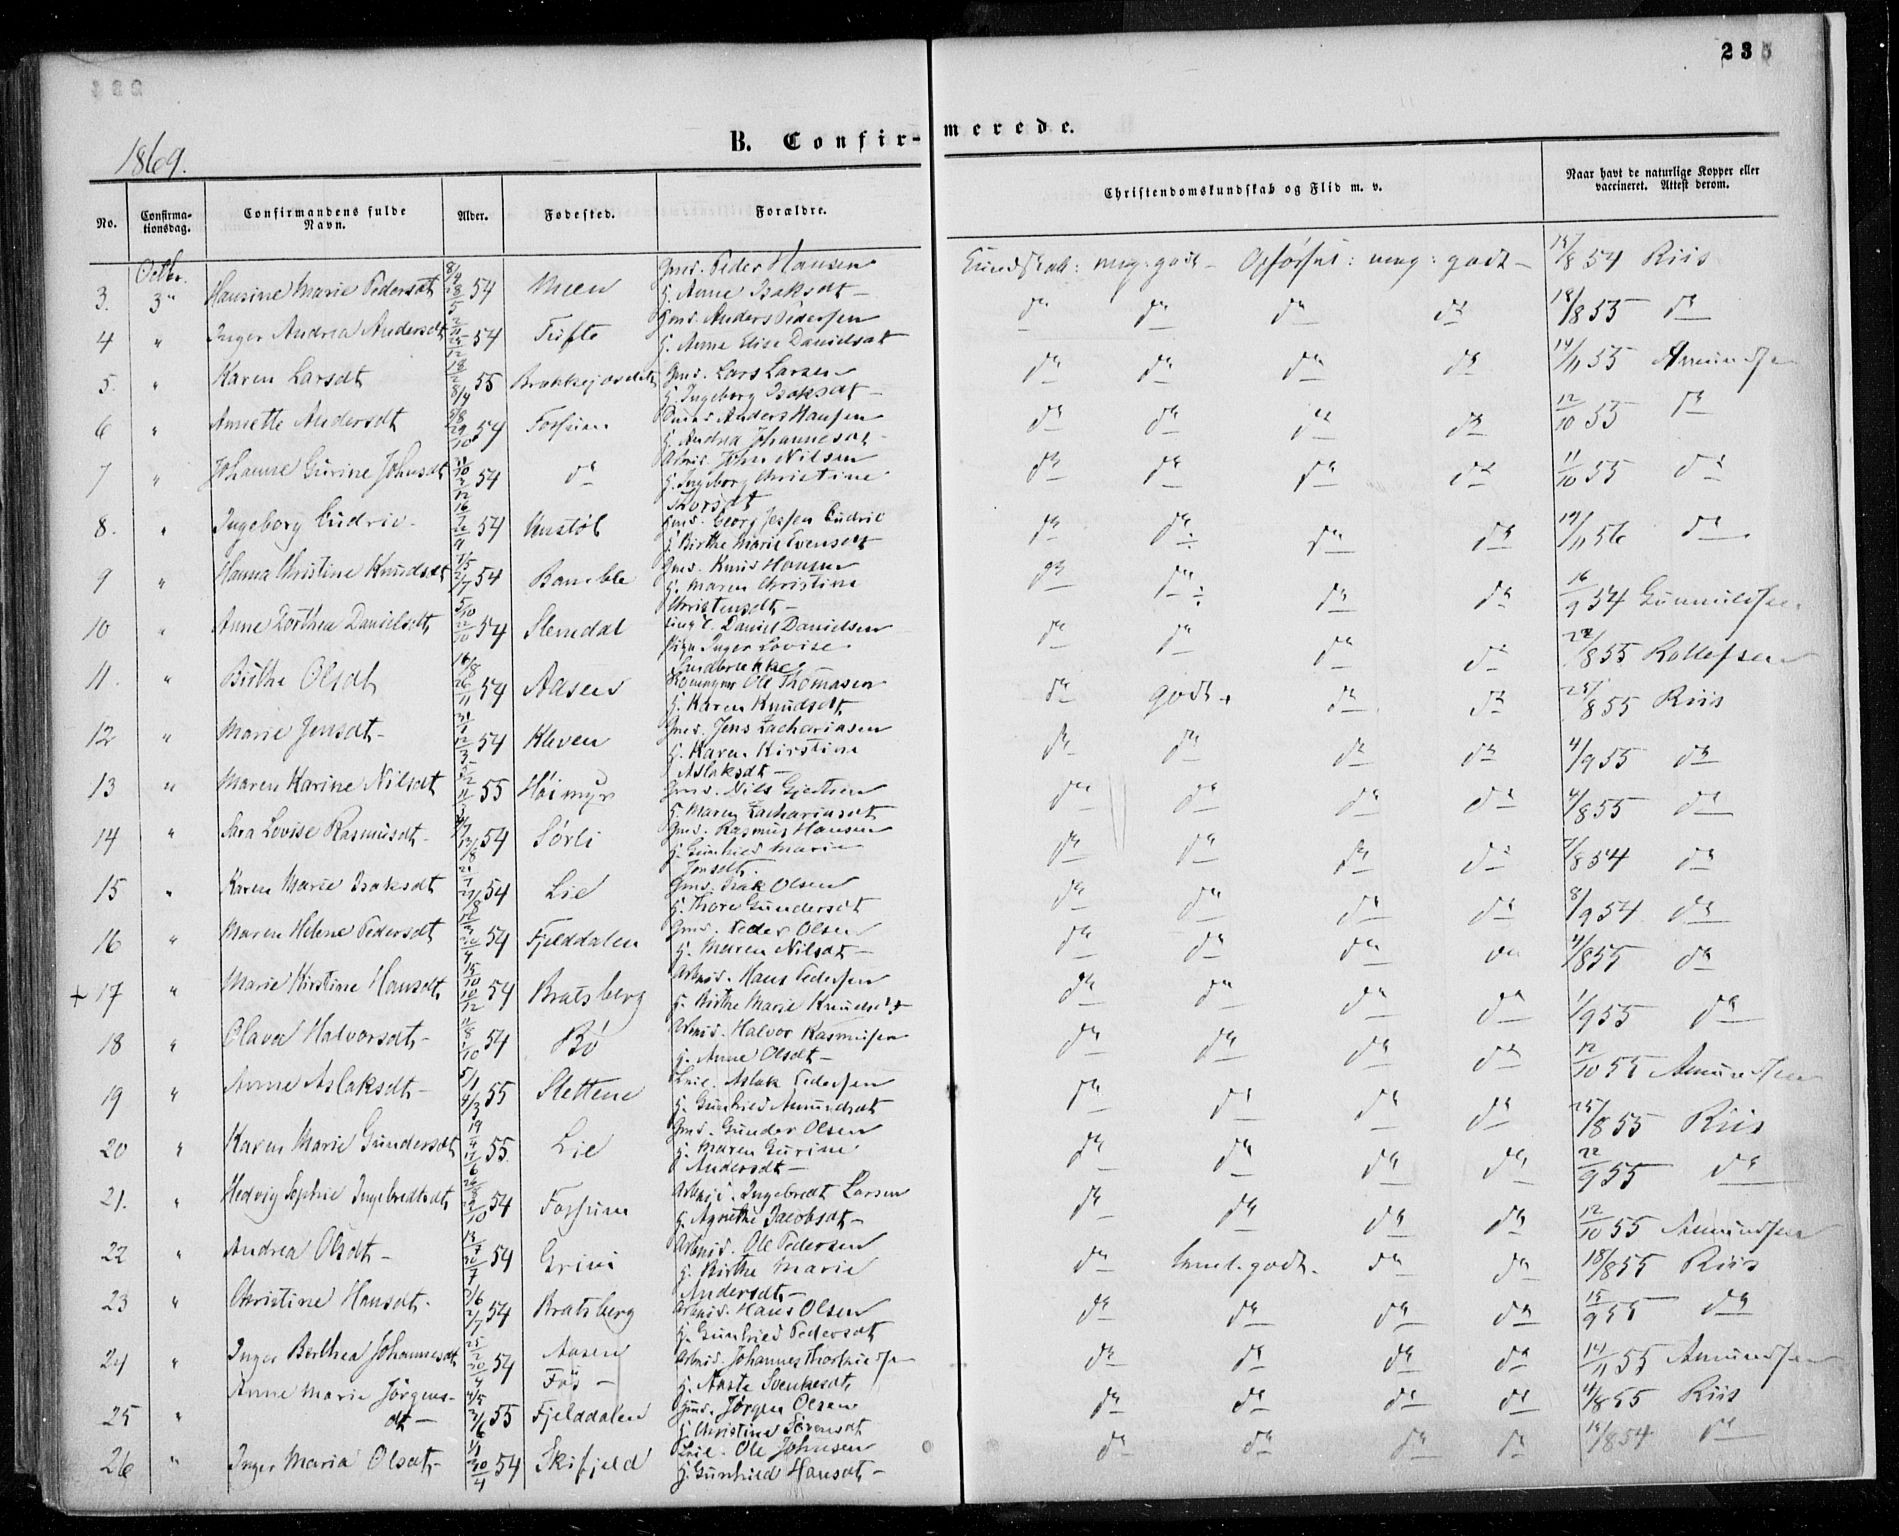 235
B. Confirmerede.
1869.
No. Confirmationsdag. Confirmandens fulde Navn. Alder. Fødested. Forældre. Christendomskundskab og Flid m. v. Naar havt de naturlige Kopper eller vaccineret. Attest derom.
Octbr.
3. 3" Hansine Marie Pedersdt 54 Moen Gmd. Peder Hansen Kundskab: meg: godt - Opførsel: meg: godt - 54 Riis
H. Anne Isaksdt -
4 " Inger Andrea Andersdt 54 Tufte Gmd. Anders Pedersen do do do do 18/8 55 do
H. Anne Elise Danielsdt
5. " Karen Larsdt 55 Brækkejordet Gmd. Lars Larsen do do do do 14/11 55 Amundsen
H. Ingeborg Isaksdt -
6 " Annette Andersdt 54 Fossum Anders Hansen do do do do 12/10 55 do
H. Andrea Johannesdt
7 " Johanne Gurine Johnsdt 54 do Arbmd. John Nilsen do do do do 11/10 55 do
H. Ingeborg Christine
Thorsdt
8. " Ingeborg Cudrio - 54 Gmd. Georg Jessen Cudrio do do do do 19/11 56 do
H. Birthe Marie Evensdt
9 " Hanna Christine Knudsdt 54 Bamble Gmd. Knud Hansen do do do do 16/9 54 Gunnulfsen
H. Maren Christine
Christensdt -
10 " Anne Dorthea Danielsdt 54 Stemdal Ungk. Daniel Danielsen do do do do 55 Rollefsen
Pige Inger Lovise
11. " Birthe Olsdt 54 Aasen Ole Thomasen do godt do do 25/8 55 Riis
H. Karen Knudsdt
12 " Marie Jensdt - 54 Kleven Gmd. Jens Zachariasen do do do do 4/9 55 do
H. Karen Kirstine
Aslaksdt -
13 " Maren Karine Nilsdt 55 Høimyr Gmd. Nils Gjertsen do do do do 4/8 55 do
H. Maren Zachariasdt
14 " Sara Lovise Rasmusdt - 54 Sørli Gmd. Rasmus Hansen do do do do 7/8 54 do
H. Gunhild Marie
Jonsdt.
15 " Karen Marie Isaksdt 54 Lie Gmd. Isak Olsen do do do do 8/9 54 do
H. Thore Gundersdt
16 " Maren Helene Pedersdt 54 Fjelddalen Gmd. Peder Olsen do do do do 4/8 55 do
H. Maren Nilsdt -
+ 17 " Marie Kirstine Hansdt 54 Bratsberg Arbmd. Hans Pedersen do do do do 1/9 55 do
H. Birthe Marie Knudsdt
18 " Olava Halvorsdt - 54 Bø Arbmd. Halvor Rasmussen do do do do 12/10 55 Amundsen
H. Anne Olsdt -
19 " Anne Aslaksdt - 5/1 4/3 55 Slettene Aslak Pedersen do do do do 25/8 55 Riis
H. Gunhild Amundsdt
20 " Karen Marie Gundersdt 55 Lie Gmd. Gunder Olsen do do do do 22/9 55 do
H. Maren Gurine
Andersdt -
21. " Hedvig Sophie Ingebredtsdt 54 Fossum Arbmd. Ingebredt Larsen do do do do 12/10 55 Amundsen
H. Agnethe Jacobsdt -
22 " Andrea Olsdt - 54 Grini Arbmd. Ole Pedersen do temml. godt. do do 18/8 55 Riis
H. Birthe Marie
Andersdt -
23 " Christine Hansdt - 54 Bratsberg Arbmd. Hans Olsen do do do do 15/9 55 do
H. Gunhild Pedersdt
24 " Inger Berthea Johannesdt 54 Aasen Arbmd. Johannes do do do do 14/11 55 Amundsen
Fos - H. Aaste Svenkesdt
25 " Anne Marie Jørgens- 55 Fjelddalen Gmd. Jørgen Olsen do do do do 4/8 55 Riis
dt - H. Christine Sørensdt
26 " Inger Maria Olsdt - 54 Skifjeld Ole Johnsen do do do do 54 do
H. Gunhild Hansdt -